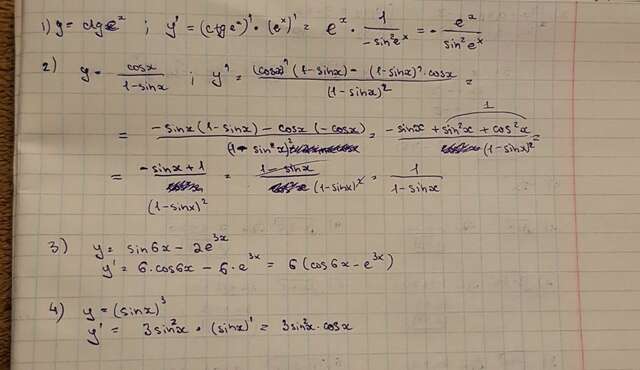 1) y = ctg e^x ; y' = (ctg e^x)' · (e^x)' = e^x · 1/(-sin²e^x) = - e^x/(sin²e^x)
2) y = cosx/(1-sinx) ; y' = ((cosx)'(1-sinx) - (1-sinx)'·cosx)/(1-sinx)² =
= (-sinx(1-sinx) - cosx(-cosx))/(1-sin x)² = (-sinx + sin²x + cos²x)/(1-sinx)² = 1
= (-sinx+1)/(1-sinx)² = (1-sinx)/(1-sinx)² = 1/(1-sinx)
3) y = sin6x - 2e^3x
y' = 6·cos6x - 6·e^3x = 6(cos6x - e^3x)
4) y = (sinx)³
y' = 3sin²x · (sinx)' = 3sin²x·cosx